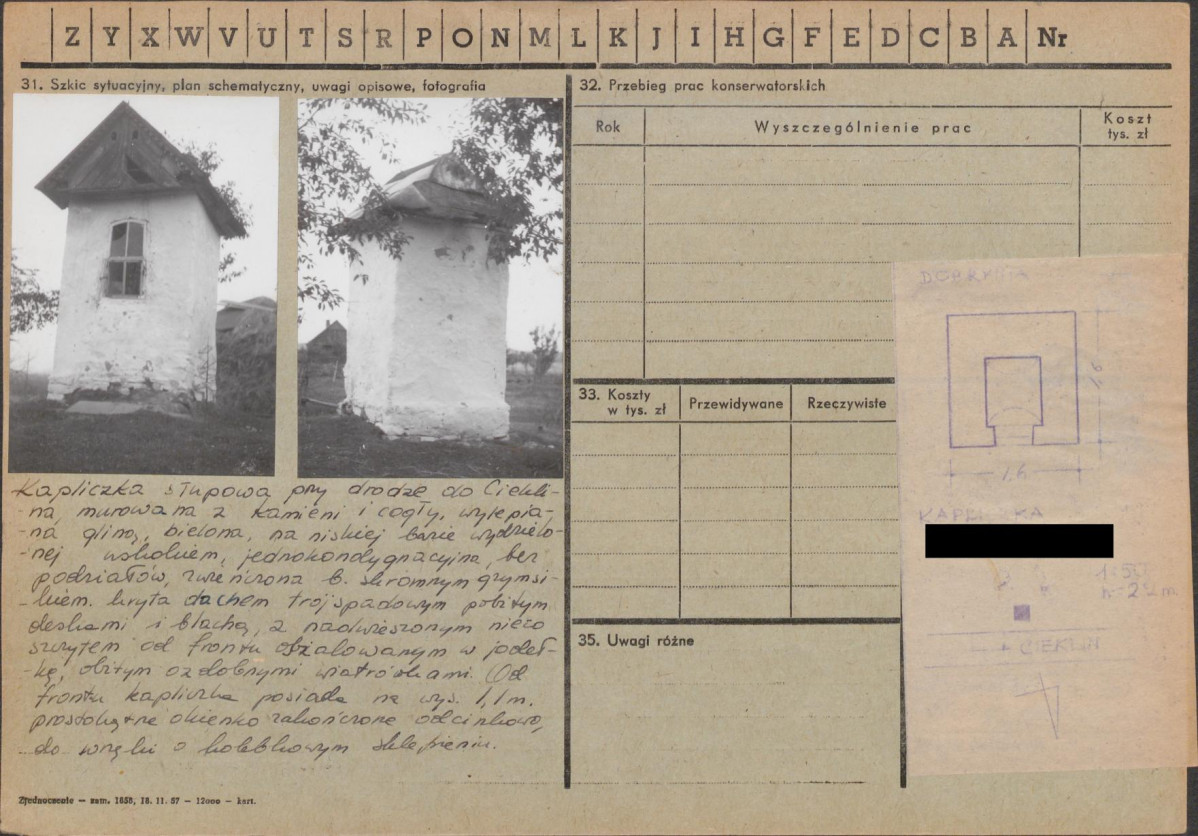 Z Y X W V U T S R P O N M L K J I H G F E D C B A Nr
31. Szkic sytuacyjny, plan schematyczny, uwagi opisowe, fotografia
Kapliczka słupowa przy drodze do Ciekli-
-na, murowana z kamieni i cegły, wylepia-
-na gliną, bielona, na niskiej bazie wydzielo-
-nej uskokiem, jednokondygnacyjna, bez
podziałów, zwieńczona b. skromnym gzymsi-
-kiem. kryta dachem trójspadowym pobitym
deskami i blachą, z nadwieszonym nieco
szczytem od frontu oszalowanym w jodeł-
-kę, obitym ozdobnymi wiatrówkami. Od
frontu kapliczka posiada na wys. 1,1 m.
prostokątne okienko zakończone odcinkowo,
do wnęki o kolebkowym sklepieniu.
Zjednoczenie — zam. 1658, 18. 11. 57 — 12000 — kart.
32. Przebieg prac konserwatorskich
Rok
Wyszczególnienie prac
Koszt
tys. zł
33. Koszty
w tys. zł
Przewidywane
Rzeczywiste
35. Uwagi różne
DOBRYNIA
1,6
1,6
KAPLICZKA
→ CIEKLIN